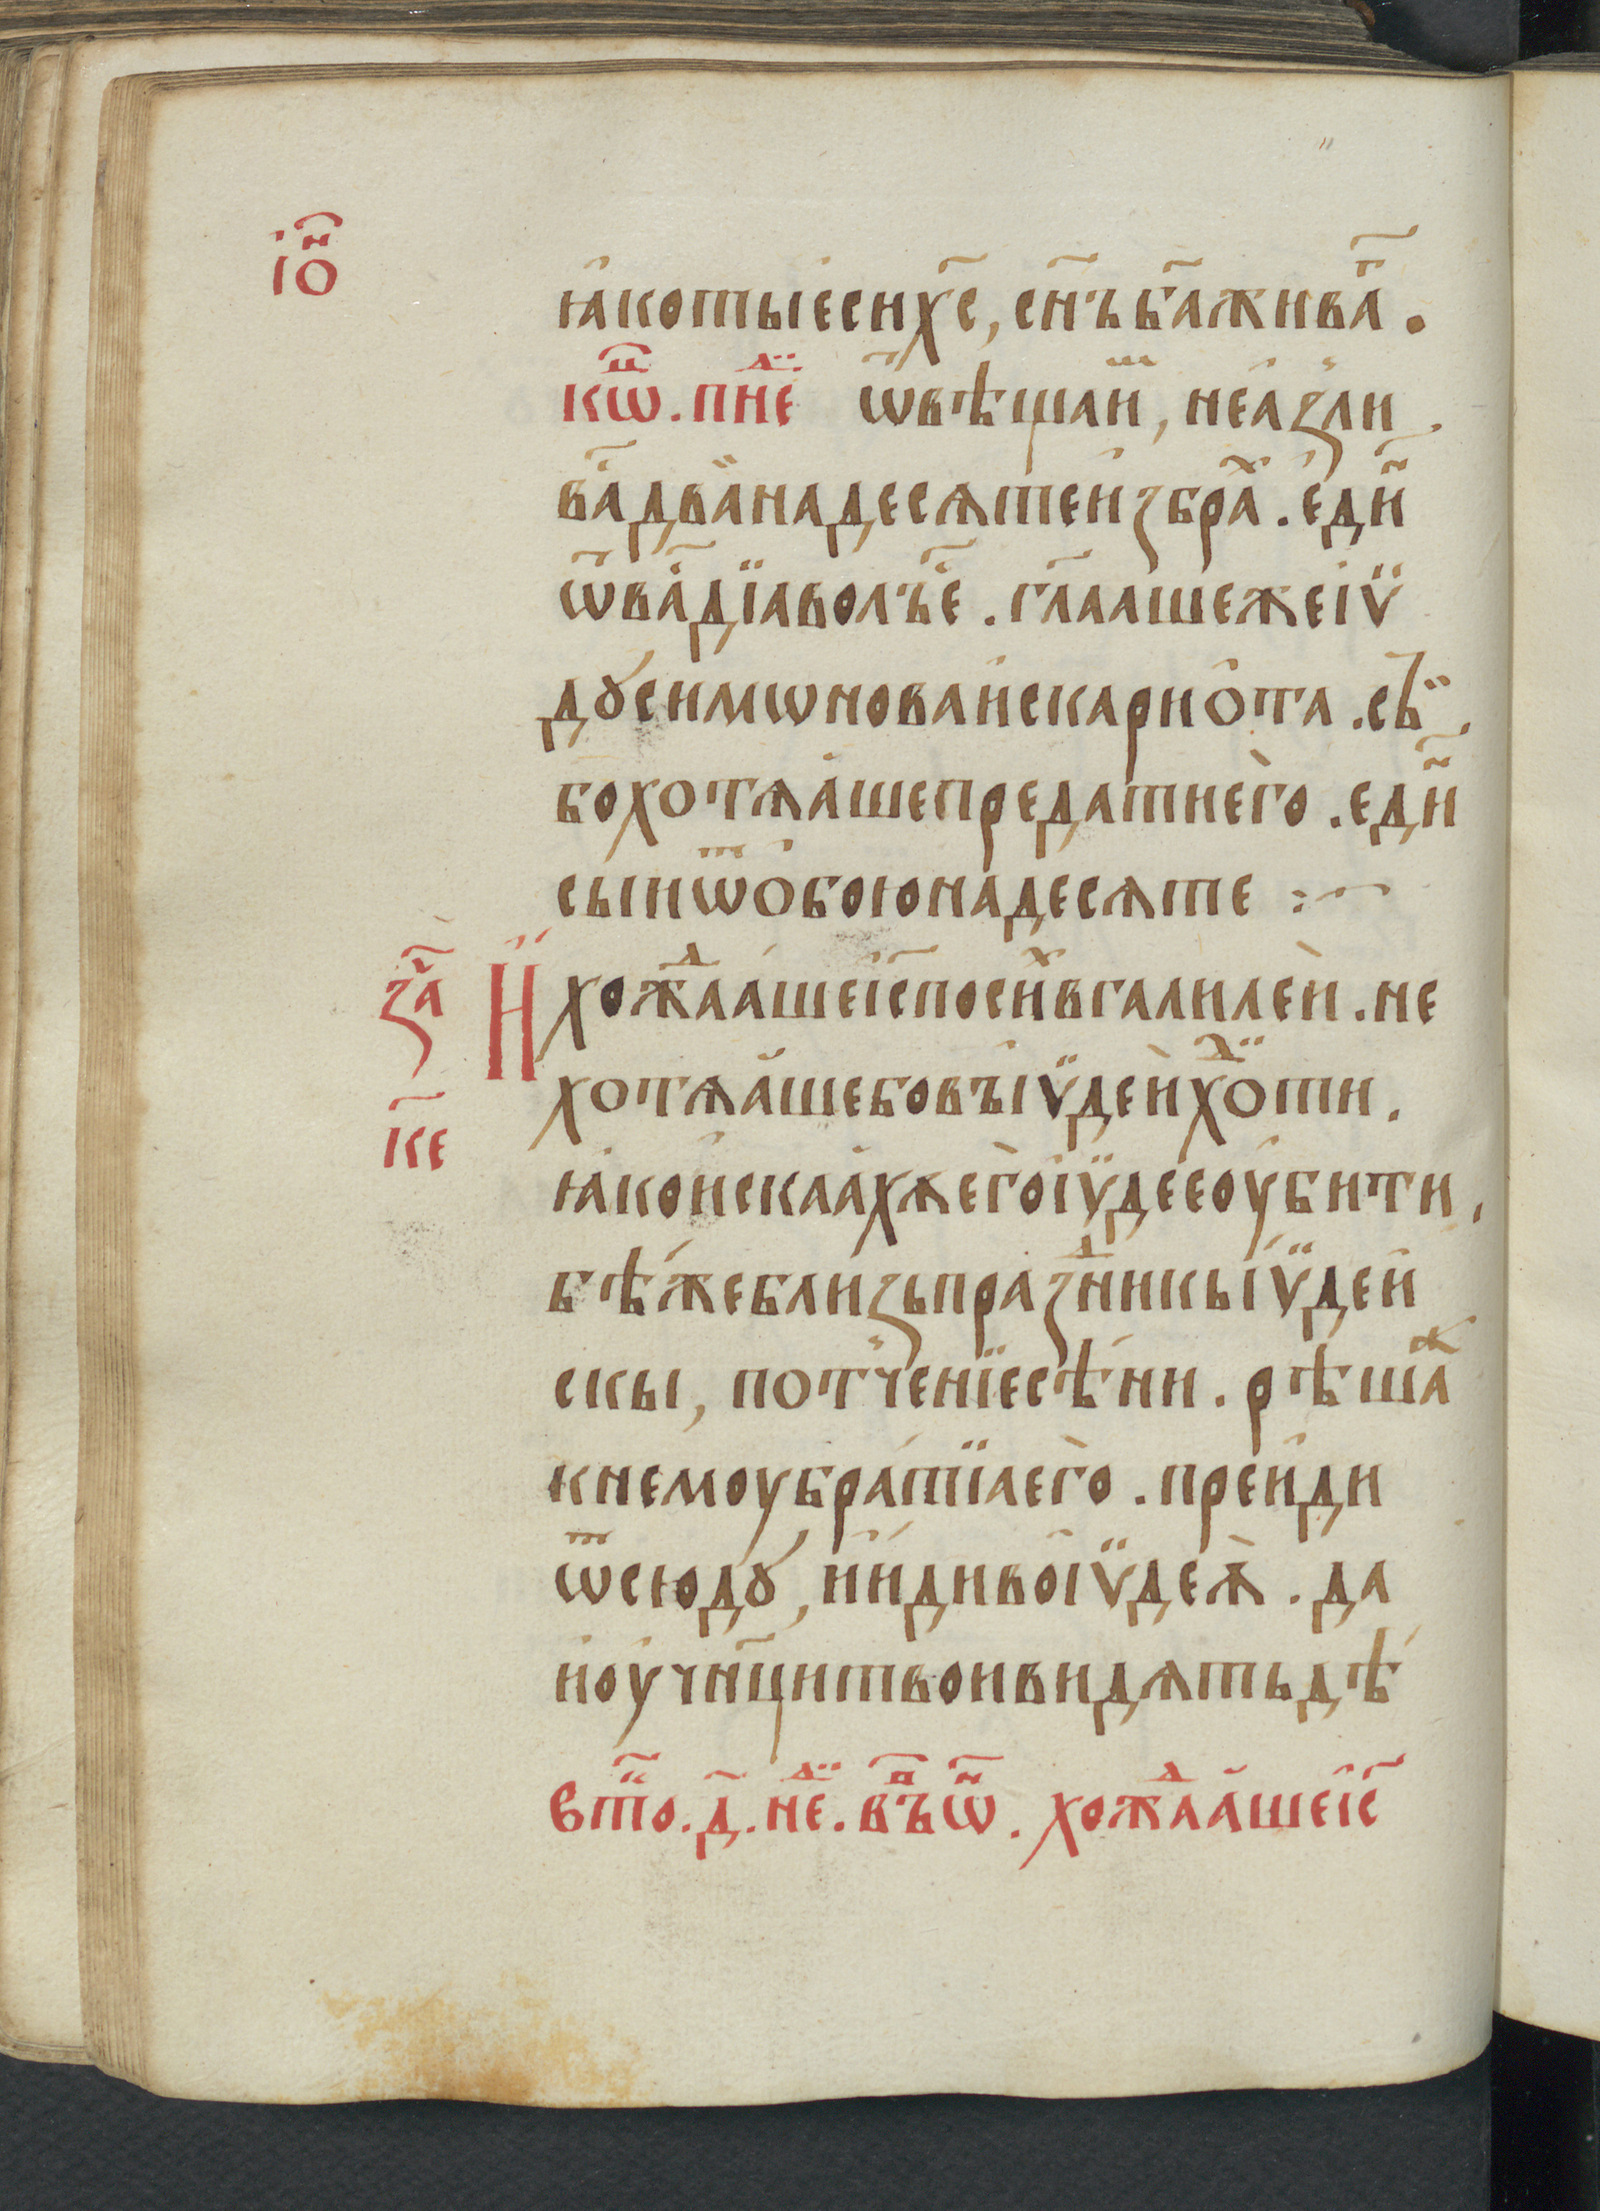 іѡ҃н
ꙗ҆котыесихс҃, сн҃ъба҃живаг҃.
кѡн҃ц. пнⷣе ѿвѣщаи҆м, неа҆ꙁли
ва҃два̏надесѧтеиꙁбраⷯ. едиⷩ
ѿва҃дїаволъе҃. гл҃аашежеіѵ̈
дꙋсимѡноваи҆скарио҆та. сьи
бохотѧа҆шепредатиего̀. едиⷩ
сыиѿѻ҆боюна́десѧте :~
за҃ И҆ хожⷣаа́шеіс҃посиⷯвгалилеѝ. не
хотѧа҆шебовъіѵ̈деѝхоⷣти.
к҃е
ꙗ҆кои҆скаа́хѫего̀іѵ̈де́еоу҆бити.
бѣ́жеблиꙁьпраꙁⷣникыіѵ̈деи
скы, потчеⷩїесѣ́ни. рѣшаⷤ
кнемоубра́тїаего̀. преи҆ди
ѿсюдꙋ, ии҆дивоіѵ̈деѫ̀. да
ио҆учн҃цитвоивидѧтьдѣ́
вто҃. д҃. неⷣ. въп҃ѡⷩ. хожⷣаа́шеіс҃